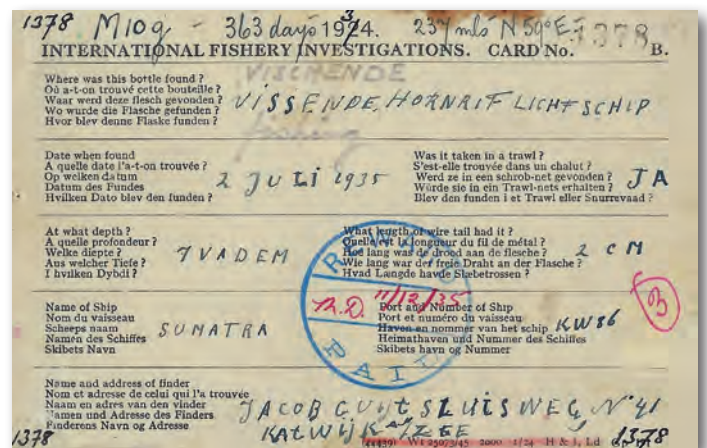 1378 M109 - 363 days 1934. 237 mls N 59° E. 1378
INTERNATIONAL FISHERY INVESTIGATIONS. CARD No. B.
VISCHENDE
Where was this bottle found ?
Où a-t-on trouvé cette bouteille ?
Waar werd deze flesch gevonden ?
Wo wurde die Flasche gefunden ?
Hvor blev denne Flaske funden ?
VISSENDE, HORNRIF LICHTSCHIP
fishing
Date when found
A quelle date l'a-t-on trouvée ?
Op welken datum
Datum des Fundes
Hvilken Dato blev den funden ?
2 JULI 1935
Was it taken in a trawl ?
S'est-elle trouvée dans un chalut ?
Werd ze in een schrob-net gevonden ?
Würde sie in ein Trawl-nets erhalten ?
Blev den funden i et Trawl eller Snurrevaad ?
JA
At what depth ?
A quelle profondeur ?
Welke diepte ?
Aus welcher Tiefe ?
I hvilken Dybdi ?
7 VADEM
What length of wire tail had it ?
Quelle est la longueur du fil de métal ?
Hoe lang was de drood aan de flesche ?
Wie lang war der freie Draht an der Flasche ?
Hvad Længde havde Slæbetrossen ?
2 CM
REWARD
11/12/35
PAID
Name of Ship
Nom du vaisseau
Scheeps naam
Namen des Schiffes
Skibets Navn
SUMATRA
Port and Number of Ship
Port et numéro du vaisseau
Haven en nommer van het schip
Heimathaven und Nummer des Schiffes
Skibets havn og Nummer
KW86
3
Name and address of finder
Nom et adresse de celui qui l'a trouvée
Naam en adres van den vinder
Namen und Adresse des Finders
Finderens Navn og Adresse
JACOB GUYT SLUISWEG N° 41
KATWIJK A/ZEE
1378
2000 1/24 H & J, Ld
1378